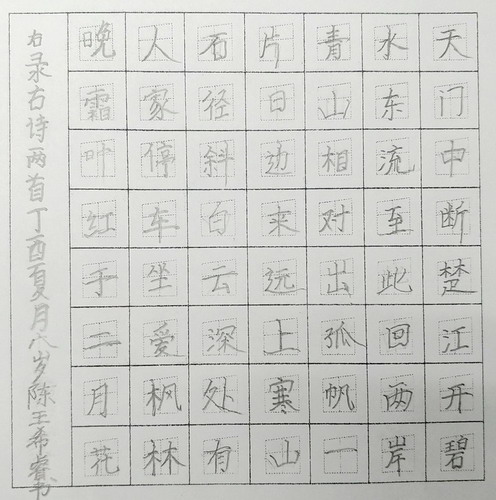 天门中断楚江开碧
水东流至此回两岸
青山相对出孤帆一
片日边来远上寒山
石径斜白云深处有
人家停车坐爱枫林
晚霜叶红于二月花
右录古诗两首丁酉夏月八岁陈王希睿书